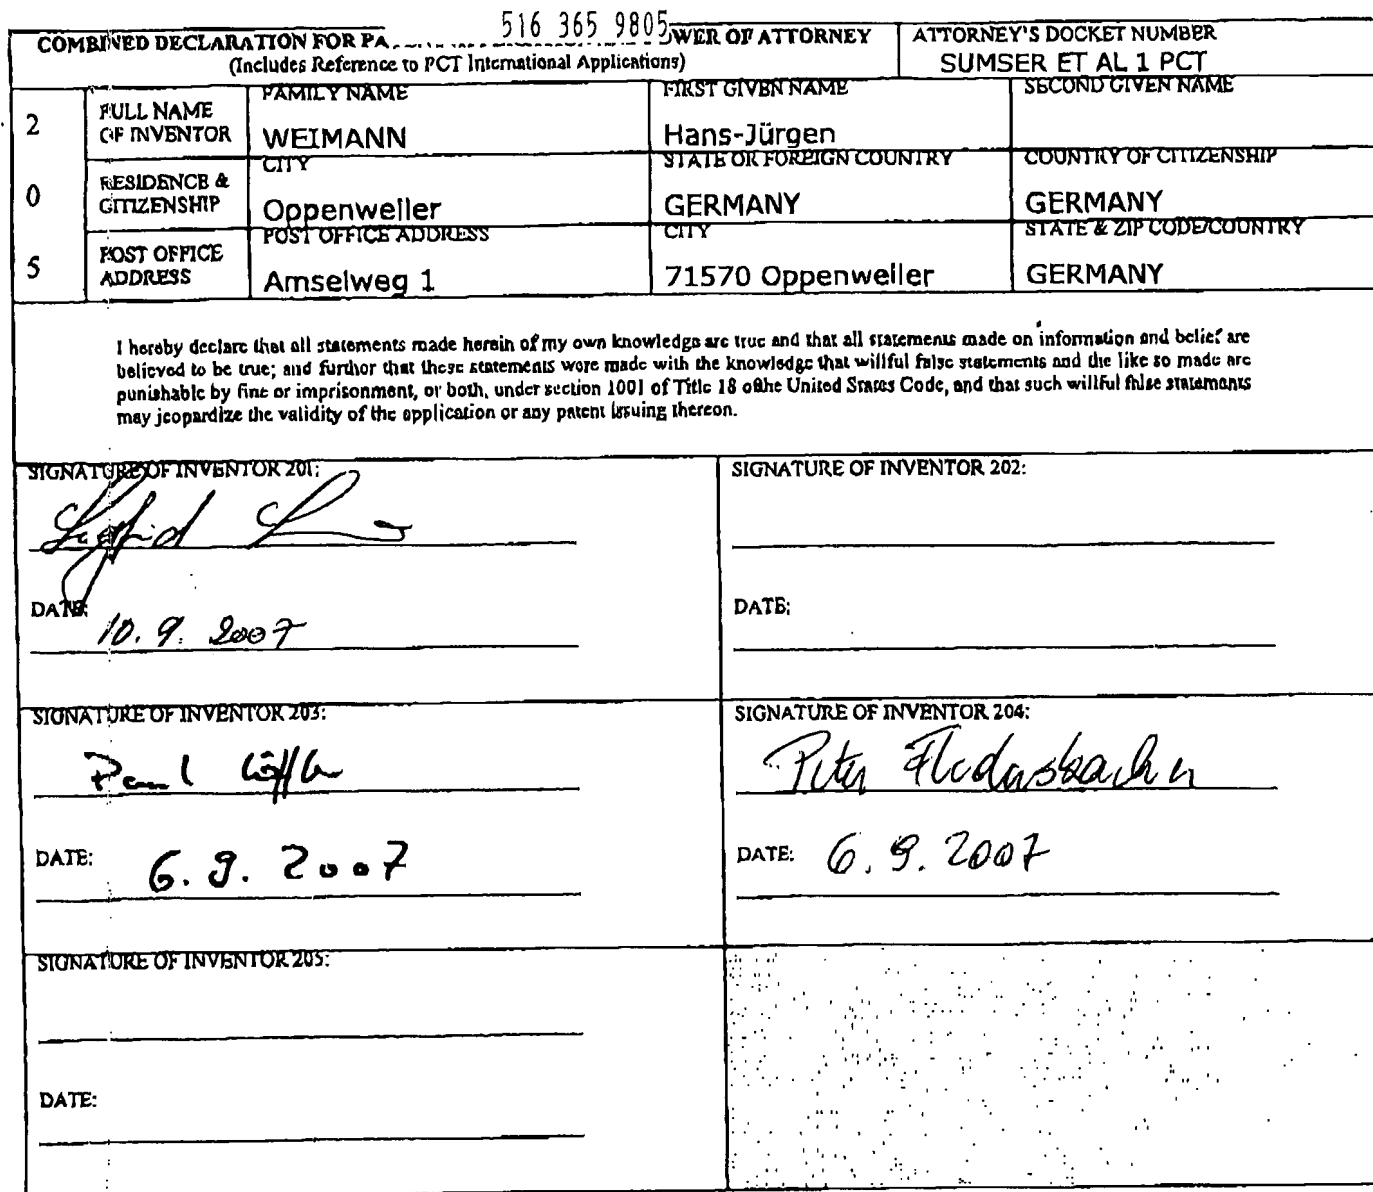 516 365 9805
COMBINED DECLARATION FOR PA WER OF ATTORNEY
(Includes Reference to PCT International Applications)
ATTORNEY'S DOCKET NUMBER
SUMSER ET AL 1 PCT
2
FULL NAME
OF INVENTOR
FAMILY NAME
WEIMANN
FIRST GIVEN NAME
Hans-Jürgen
SECOND GIVEN NAME
0
RESIDENCE &
CITIZENSHIP
CITY
Oppenweiler
STATE OR FOREIGN COUNTRY
GERMANY
COUNTRY OF CITIZENSHIP
GERMANY
5
POST OFFICE
ADDRESS
POST OFFICE ADDRESS
Amselweg 1
CITY
71570 Oppenweiler
STATE & ZIP CODE/COUNTRY
GERMANY
I hereby declare that all statements made herein of my own knowledge are true and that all statements made on information and belief are
believed to be true; and further that these statements were made with the knowledge that willful false statements and the like so made are
punishable by fine or imprisonment, or both, under section 1001 of Title 18 ofthe United States Code, and that such willful false statements
may jeopardize the validity of the application or any patent issuing thereon.
SIGNATURE OF INVENTOR 201:
DATE:
10. 9. 2007
SIGNATURE OF INVENTOR 202:
DATE:
SIGNATURE OF INVENTOR 203:
Paul
DATE: 6. 9. 2007
SIGNATURE OF INVENTOR 204:
Peter
DATE: 6. 9. 2007
SIGNATURE OF INVENTOR 205:
DATE: